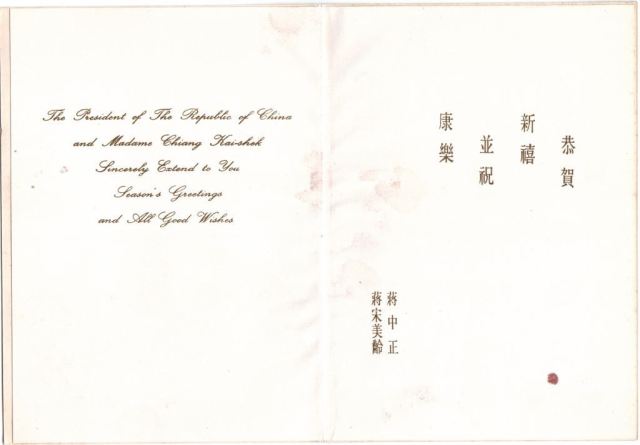 The President of The Republic of China
and Madame Chiang Kai-shek
Sincerely Extend to You
Season's Greetings
and All Good Wishes
恭賀
新禧
並祝
康樂
蔣中正
蔣宋美齡